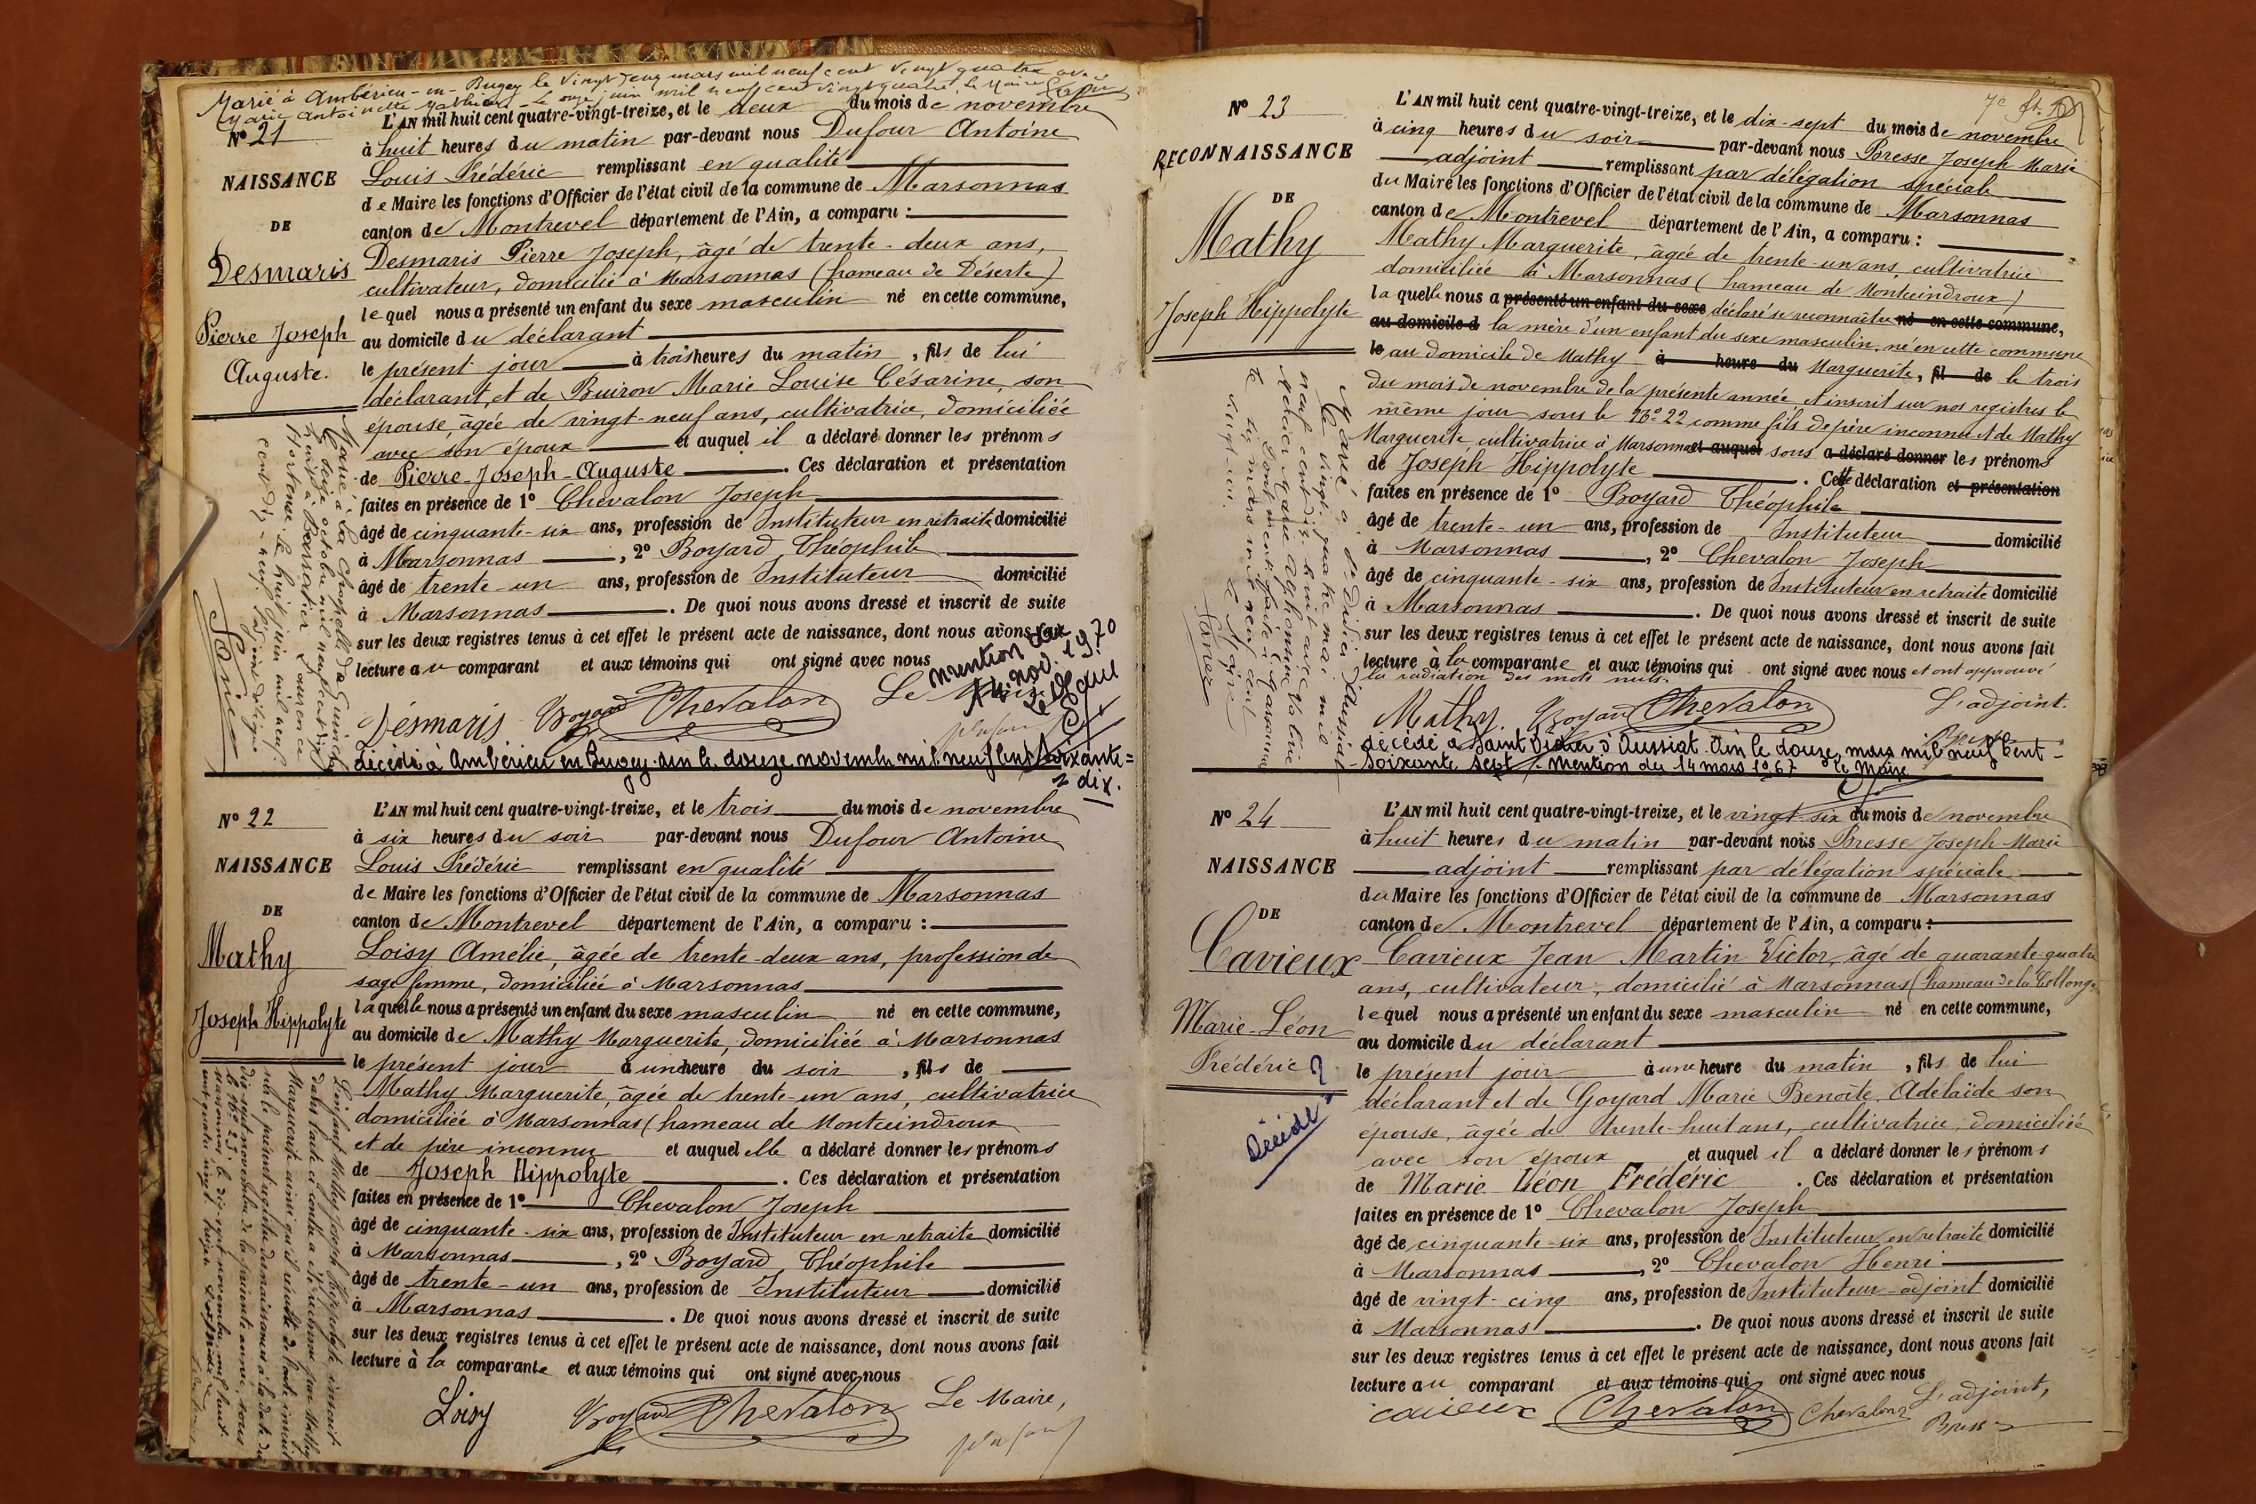 Marié à Ambérieu-en-Bugey le vingt deux mars mil neuf cent vingt quatre avec
Marie Antoinette le onze juin mil neuf cent vingt quatre, le Maire
No 21
NAISSANCE
DE
Desmaris
Pierre Joseph
Auguste.
L'AN mil huit cent quatre-vingt-treize, et le deux du mois de novembre
à huit heures du matin par-devant nous Dufour Antoine
Louis Frédéric remplissant en qualité
de Maire les fonctions d'Officier de l'état civil de la commune de Marsonnas
canton de Montrevel département de l'Ain, a comparu :
Desmaris Pierre Joseph, âgé de trente-deux ans,
cultivateur, domicilié à Marsonnas (hameau de Déserte)
lequel nous a présenté un enfant du sexe masculin né en cette commune,
au domicile du déclarant
le présent jour à trois heures du matin, fils de lui
déclarant, et de Buiron Marie Louise Césarine, son
épouse, âgée de vingt-neuf ans, cultivatrice, domiciliée
avec son époux et auquel il a déclaré donner les prénoms
de Pierre-Joseph-Auguste. Ces déclaration et présentation
faites en présence de 1° Chevalon Joseph
âgé de cinquante-six ans, profession de Instituteur en retraite domicilié
à Marsonnas, 2° Boyard Théophile
âgé de trente-un ans, profession de Instituteur domicilié
à Marsonnas. De quoi nous avons dressé et inscrit de suite
sur les deux registres tenus à cet effet le présent acte de naissance, dont nous avons fait
lecture au comparant et aux témoins qui ont signé avec nous
Mention du
14 nov. 1970
Le Maire
Desmaris Boyard Chevalon
décédé à Ambérieu en Bugey. Ain le douze novembre mil neuf cent soixante=
dix.
Marié à la Chapelle de Guinchay
le dix octobre mil neuf cent dix
huit à Bessardier Laurence
Hortense, le huit juin mil neuf
cent dix-neuf
No 22
NAISSANCE
DE
Mathy
Joseph Hippolyte
L'AN mil huit cent quatre-vingt-treize, et le trois du mois de novembre
à six heures du soir par-devant nous Dufour Antoine
Louis Frédéric remplissant en qualité
de Maire les fonctions d'Officier de l'état civil de la commune de Marsonnas
canton de Montrevel département de l'Ain, a comparu :
Loisy Amélie, âgée de trente-deux ans, profession de
sage femme, domiciliée à Marsonnas
laquelle nous a présenté un enfant du sexe masculin né en cette commune,
au domicile de Mathy Marguerite, domiciliée à Marsonnas
le présent jour à une heure du soir, fils de
Mathy Marguerite, âgée de trente-un ans, cultivatrice
domiciliée à Marsonnas (hameau de Montceindroux
et de père inconnu et auquel elle a déclaré donner les prénoms
de Joseph Hippolyte. Ces déclaration et présentation
faites en présence de 1° Chevalon Joseph
âgé de cinquante-six ans, profession de Instituteur en retraite domicilié
à Marsonnas, 2° Boyard Théophile
âgé de trente-un ans, profession de Instituteur domicilié
à Marsonnas. De quoi nous avons dressé et inscrit de suite
sur les deux registres tenus à cet effet le présent acte de naissance, dont nous avons fait
lecture à la comparante et aux témoins qui ont signé avec nous
Loisy Boyard Chevalon Le Maire,
L'enfant Mathy Joseph Hippolyte inscrit
dans l'acte ci-contre a été reconnu par Mathy
Marguerite ainsi qu'il résulte de l'acte inscrit
sur le présent registre de naissances à la date du
dix-sept novembre de la présente année, sous
le No 23.
Marsonnas le dix-sept novembre mil huit
cent quatre vingt treize
No 23
RECONNAISSANCE
DE
Mathy
Joseph Hippolyte
L'AN mil huit cent quatre-vingt-treize, et le dix-sept du mois de novembre
à cinq heures du soir par-devant nous Bresse Joseph Marie
adjoint remplissant par délégation spéciale
du Maire les fonctions d'Officier de l'état civil de la commune de Marsonnas
canton de Montrevel département de l'Ain, a comparu :
Mathy Marguerite, âgée de trente-un ans, cultivatrice
domiciliée à Marsonnas (hameau de Montceindroux)
laquelle nous a présenté un enfant du sexe déclaré se reconnaître né en cette commune,
au domicile d la mère d'un enfant du sexe masculin, né en cette commune
le au domicile de Mathy à heure du Marguerite, fil de le trois
du mois de novembre de la présente année et inscrit sur nos registres le
même jour sous le No 22 comme fils de père inconnu et de Mathy
Marguerite cultivatrice à Marsonnas et auquel sous a déclaré donner les prénoms
de Joseph Hippolyte. Cette déclaration et présentation
faites en présence de 1° Boyard Théophile
âgé de trente-un ans, profession de Instituteur domicilié
à Marsonnas, 2° Chevalon Joseph
âgé de cinquante-six ans, profession de Instituteur en retraite domicilié
à Marsonnas. De quoi nous avons dressé et inscrit de suite
sur les deux registres tenus à cet effet le présent acte de naissance, dont nous avons fait
lecture à la comparante et aux témoins qui ont signé avec nous et ont approuvé
la radiation des mots nuls.
Mathy Boyard Chevalon L'adjoint.
décédé à Saint Didier d'Aussiat. Ain le douze mars mil neuf cent
soixante sept. Mention du 14 mars 1967 Le Maire
Marié à St Didier d'Aussiat
le vingt-quatre mai mil
neuf cent dix-huit avec
No 24
NAISSANCE
DE
Cavieux
Marie-Léon
Frédéric
Décédé
L'AN mil huit cent quatre-vingt-treize, et le vingt-six du mois de novembre
à huit heures du matin par-devant nous Bresse Joseph Marie
adjoint remplissant par délégation spéciale
du Maire les fonctions d'Officier de l'état civil de la commune de Marsonnas
canton de Montrevel département de l'Ain, a comparu :
Cavieux Jean Martin Victor, âgé de quarante-quatre
ans, cultivateur, domicilié à Marsonnas (hameau de la Collonge
lequel nous a présenté un enfant du sexe masculin né en cette commune,
au domicile du déclarant
le présent jour à une heure du matin, fils de lui
déclarant et de Goyard Marie Benoîte Adélaïde son
épouse, âgée de trente-huit ans, cultivatrice, domiciliée
avec son époux et auquel il a déclaré donner les prénoms
de Marie Léon Frédéric. Ces déclaration et présentation
faites en présence de 1° Chevalon Joseph
âgé de cinquante-six ans, profession de Instituteur en retraite domicilié
à Marsonnas, 2° Chevalon Henri
âgé de vingt-cinq ans, profession de Instituteur-adjoint domicilié
à Marsonnas. De quoi nous avons dressé et inscrit de suite
sur les deux registres tenus à cet effet le présent acte de naissance, dont nous avons fait
lecture au comparant et aux témoins qui ont signé avec nous
Cavieux Chevalon Chevalon L'adjoint,
Bresse